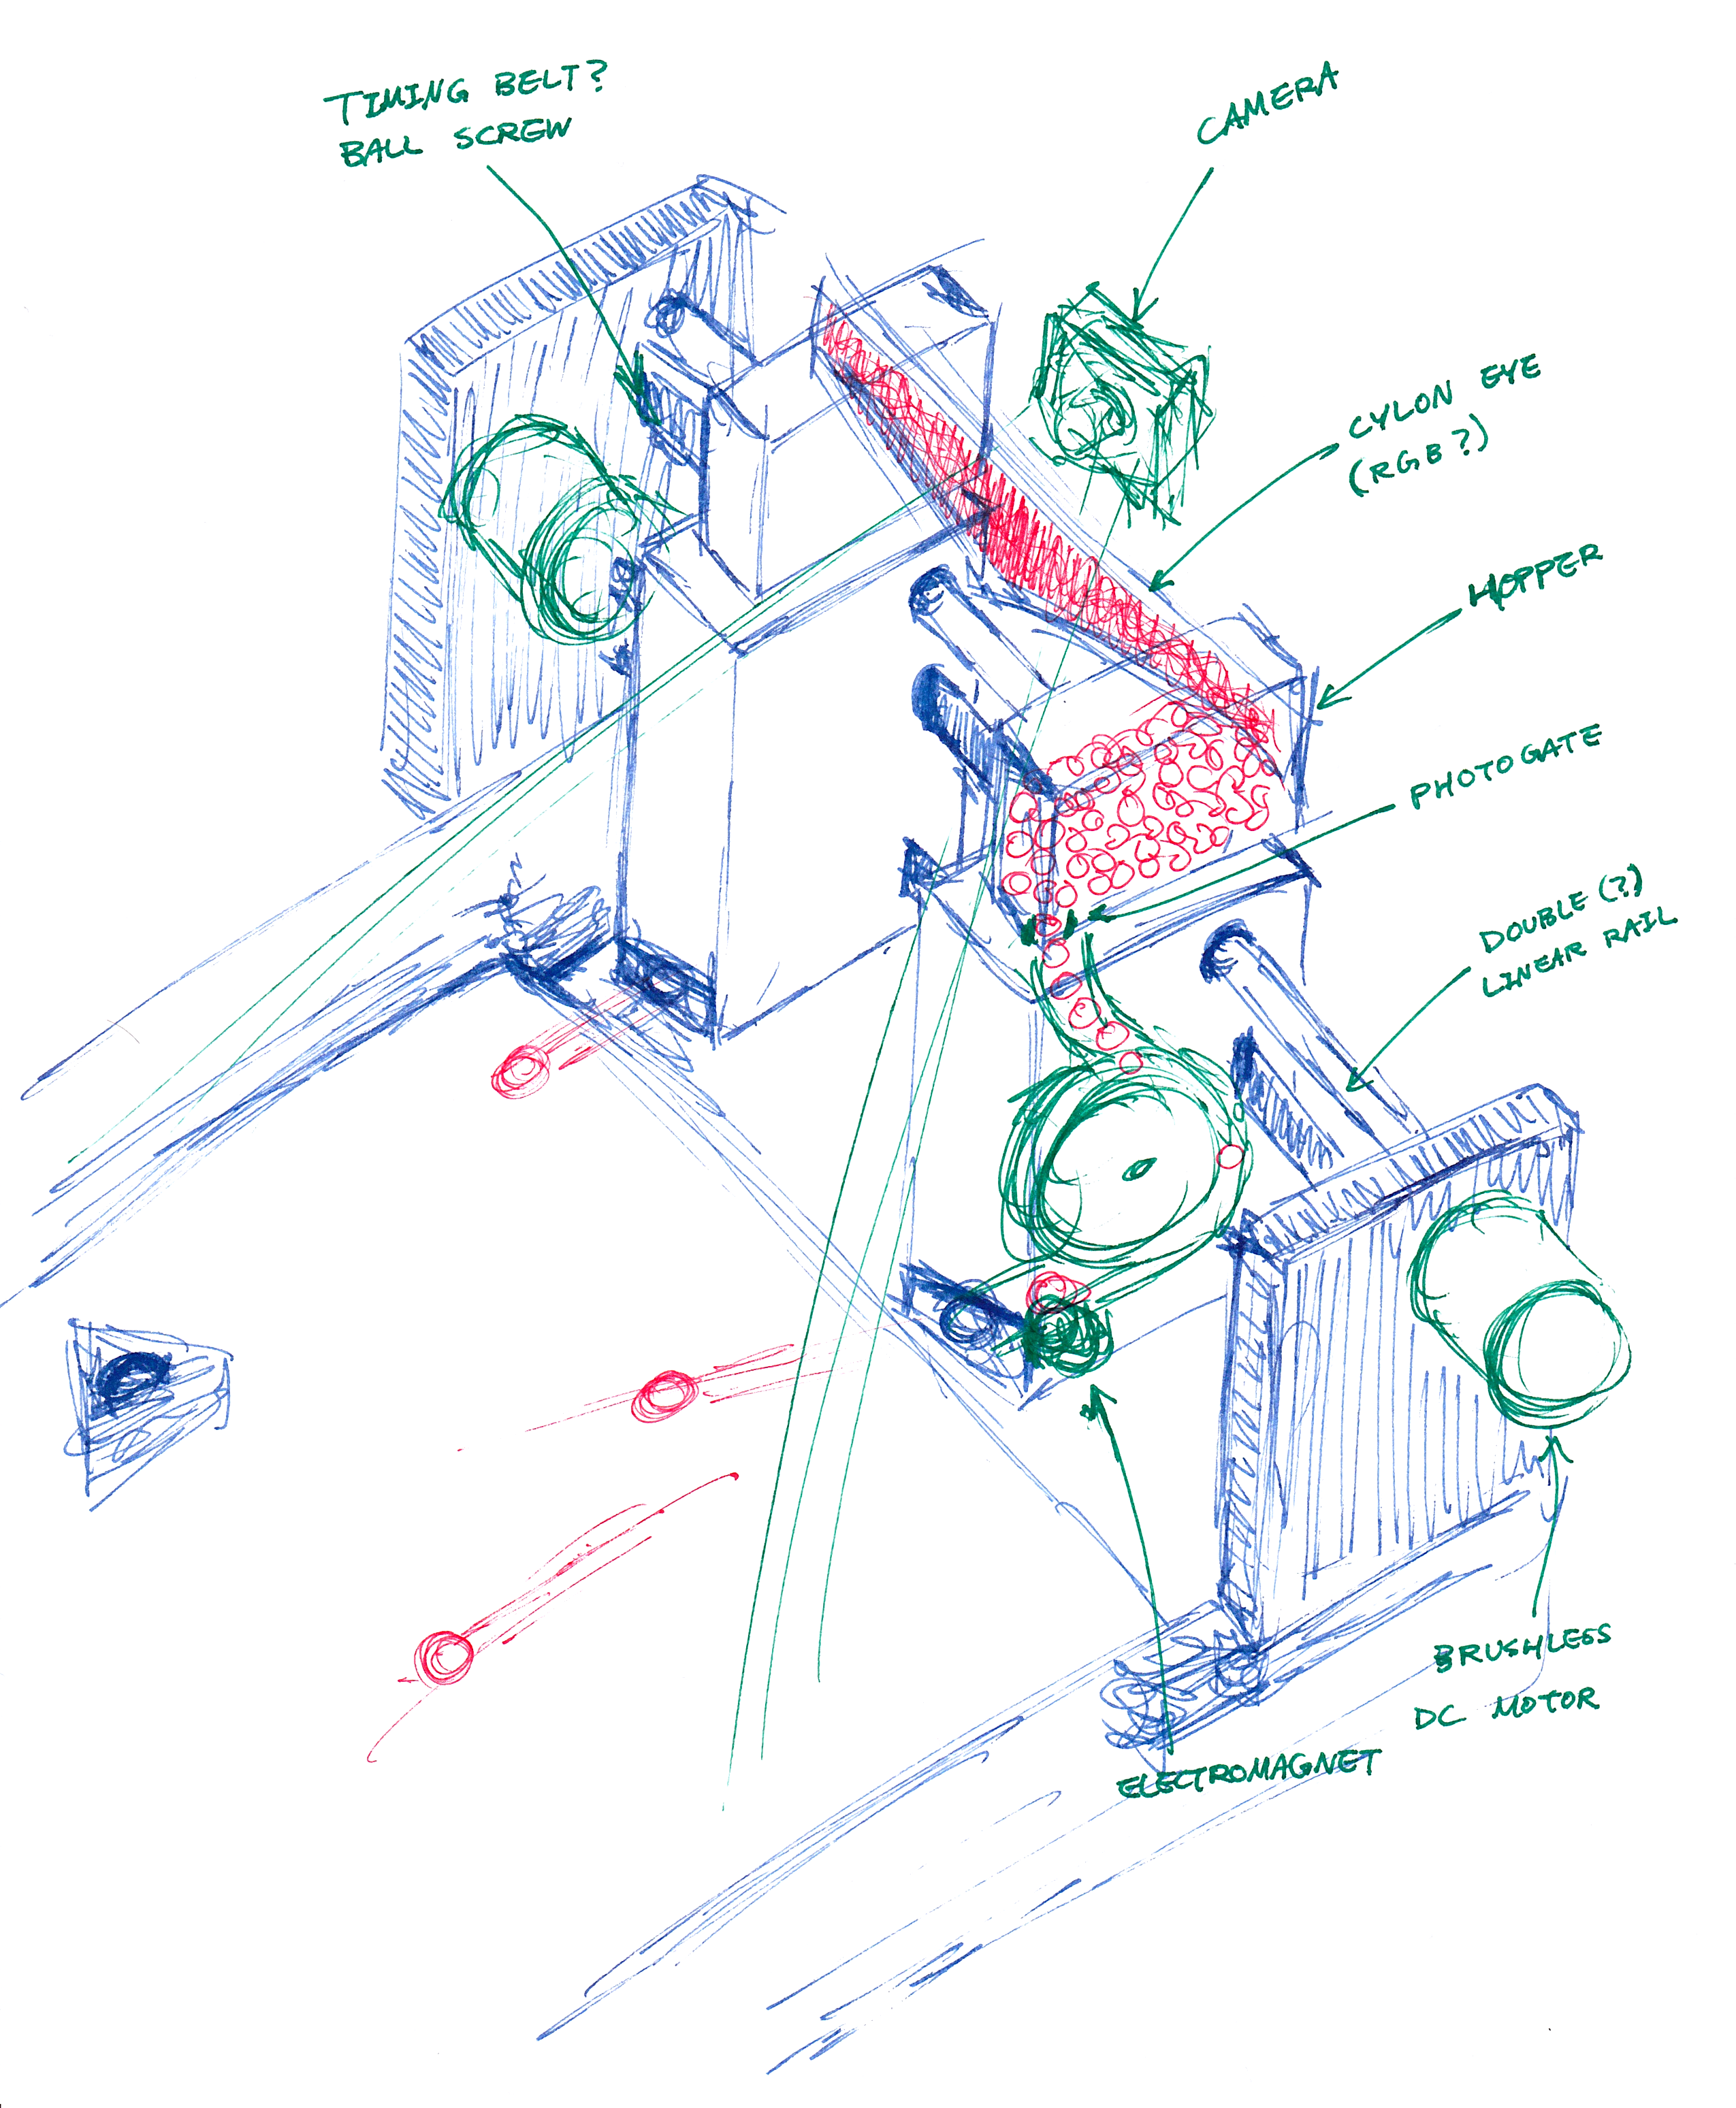 TIMING BELT?
BALL SCREW
CAMERA
CYLON EYE
(RGB?)
HOPPER
PHOTOGATE
DOUBLE (?)
LINEAR RAIL
BRUSHLESS
DC MOTOR
ELECTROMAGNET